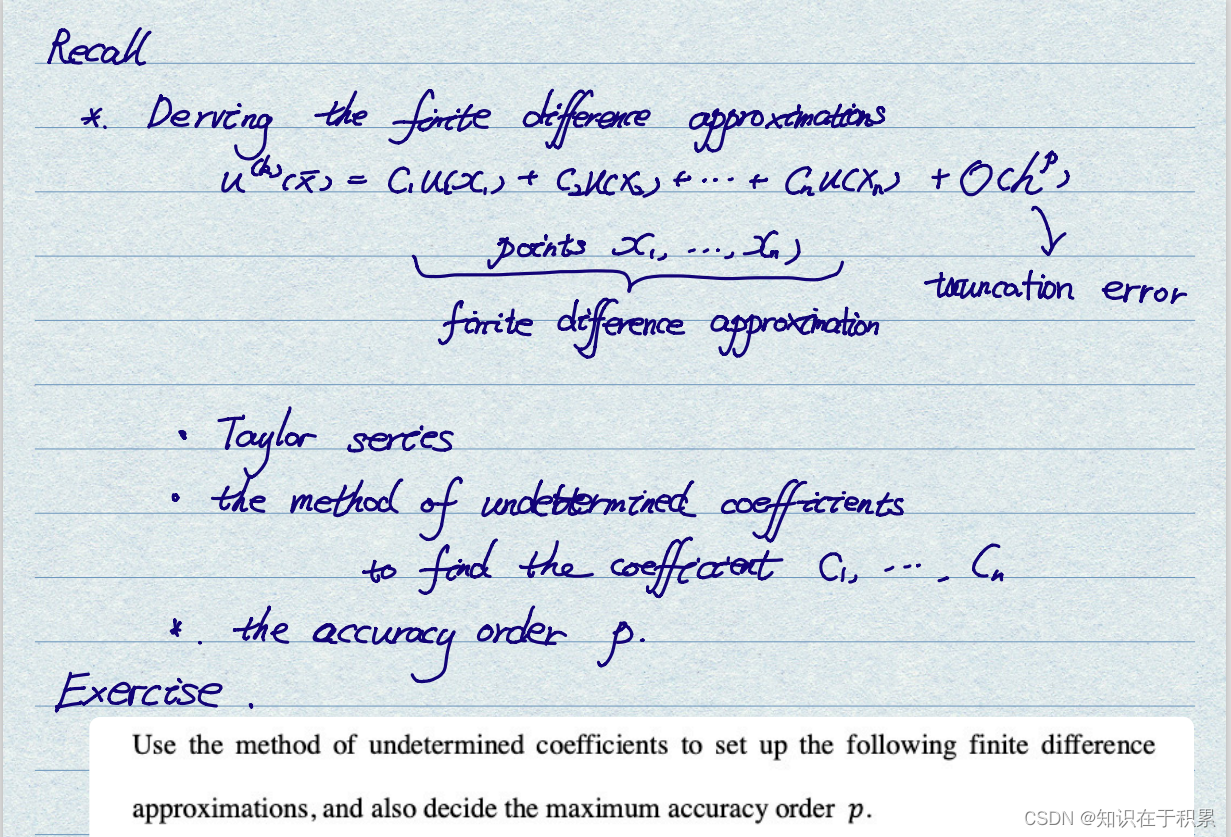 Recall
*. Derving the finite difference approximations
u^(k)(x̄) = C₁u(x₁) + C₂u(x₂) + ··· + Cₙu(xₙ) + O(h^p)
points x₁, ..., xₙ)
truncation error
finite difference approximation
• Taylor series
• the method of undetermined coefficients
to find the coefficient C₁, ··· , Cₙ
*. the accuracy order p.
Exercise.
Use the method of undetermined coefficients to set up the following finite difference
approximations, and also decide the maximum accuracy order p.
CSDN @知识在于积累